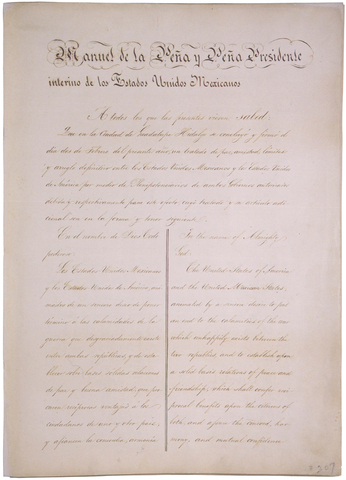 Manuel de la Peña y Peña Presidente
interino de los Estados Unidos Mexicanos
A todos los que las presentes vieren sabed:
Que en la Ciudad de Guadalupe Hidalgo se concluyó y firmó el
día dos de Febrero del presente año, un tratado de paz, amistad, límites
y arreglo definitivo entre los Estados Unidos Mexicanos y los Estados Unidos
de América por medio de Plenipotenciarios de ambos Gobiernos autorizados
debida y respectivamente para este efecto, cuyo tratado y su artículo adi-
cional son en la forma y tenor siguiente.
En el nombre de Dios Todo
poderoso:
Los Estados Unidos Mexicanos
y los Estados Unidos de América, ani-
mados de un sincero deseo de poner
término a las calamidades de la
guerra que desgraciadamente existe
entre ambas repúblicas, y de esta-
blecer sobre bases sólidas relaciones
de paz y buena amistad, que pro-
curen recíprocas ventajas a los
ciudadanos de uno y otro país,
y afiancen la concordia, armonía
In the name of Almighty
God:
The United States of America
and the United Mexican States,
animated by a sincere desire to put
an end to the calamities of the war
which unhappily exists between the
two republics, and to establish upon
a solid basis relations of peace and
friendship, which shall confer re-
ciprocal benefits upon the citizens of
both, and assure the concord, har-
mony, and mutual confidence